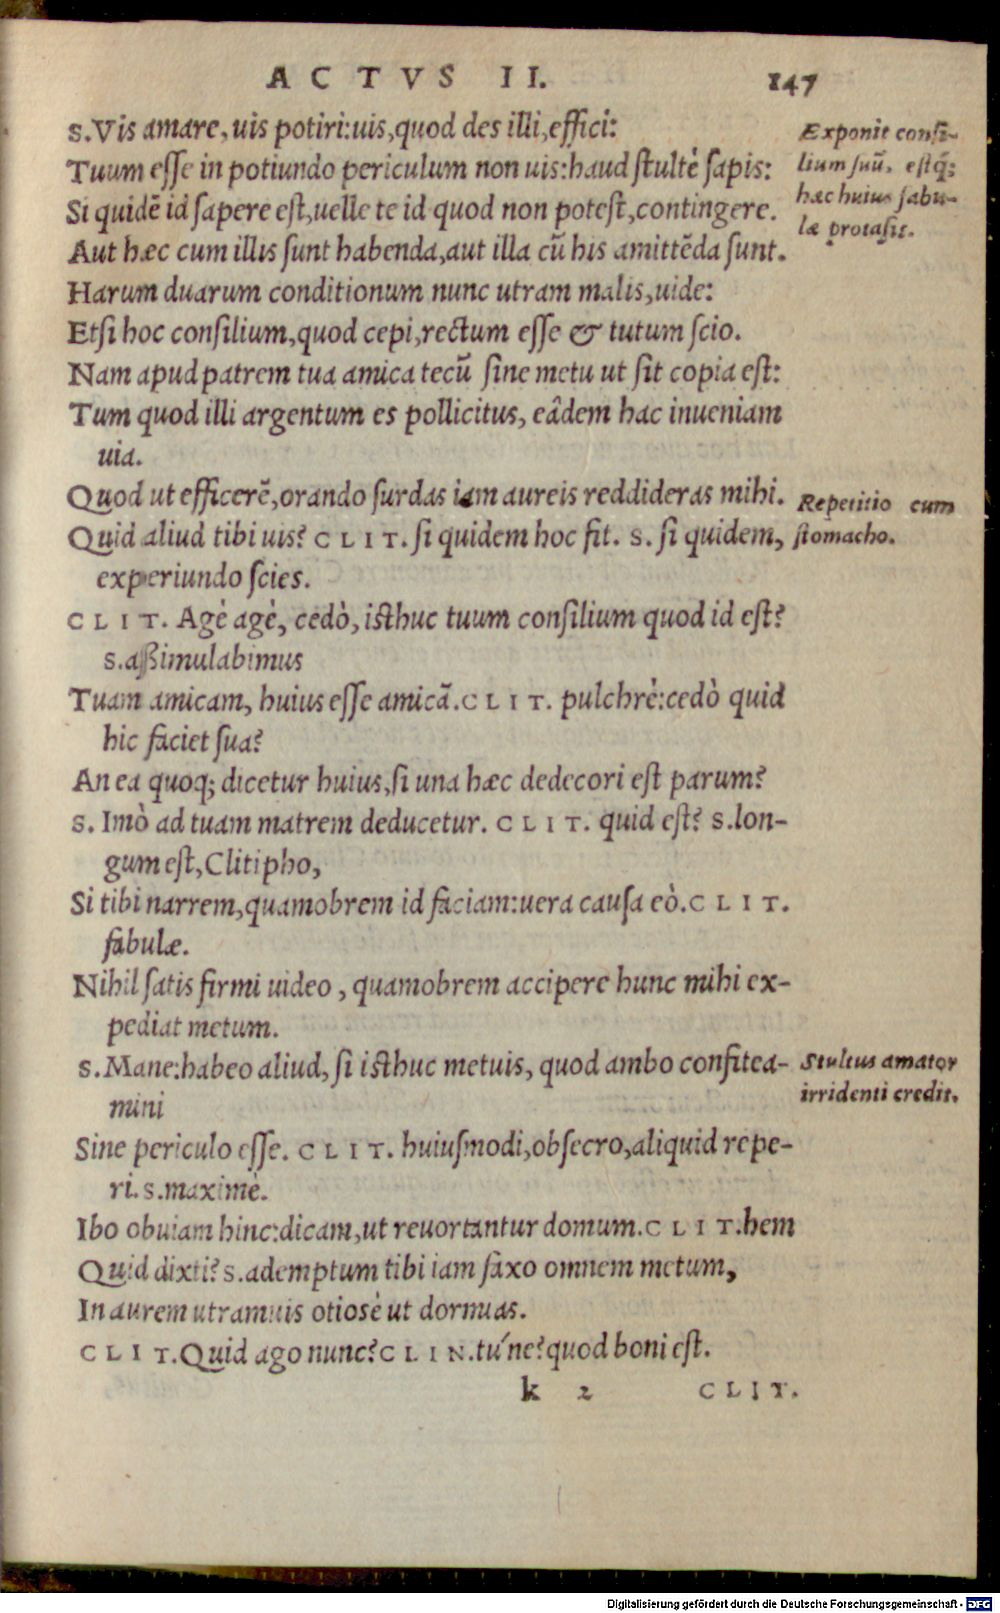 ACTVS II. 147
S. Vis amare, uis potiri: uis, quod des illi, effici:
Tuum esse in potiundo periculum non uis: haud stultè sapis:
Si quidē id sapere est, uelle te id quod non potest, contingere.
Aut hæc cum illis sunt habenda, aut illa cū his amittēda sunt.
Harum duarum conditionum nunc utram malis, uide:
Etsi hoc consilium, quod cepi, rectum esse & tutum scio.
Nam apud patrem tua amica tecū sine metu ut sit copia est:
Tum quod illi argentum es pollicitus, eâdem hac inueniam
uia.
Quod ut efficerē, orando surdas iam aureis reddideras mihi.
Quid aliud tibi uis? CLIT. si quidem hoc fit. S. si quidem,
experiundo scies.
CLIT. Agè agè, cedò, isthuc tuum consilium quod id est?
S. aßimulabimus
Tuam amicam, huius esse amicā. CLIT. pulchrè: cedò quid
hic faciet sua?
An ea quoq; dicetur huius, si una hæc dedecori est parum?
S. Imò ad tuam matrem deducetur. CLIT. quid est? S. lon-
gum est, Clitipho,
Si tibi narrem, quamobrem id faciam: uera causa eò. CLIT.
fabulæ.
Nihil satis firmi uideo, quamobrem accipere hunc mihi ex-
pediat metum.
S. Mane: habeo aliud, si isthuc metuis, quod ambo confitea-
mini
Sine periculo esse. CLIT. huiusmodi, obsecro, aliquid repe-
ri. S. maximè.
Ibo obuiam hinc: dicam, ut reuortantur domum. CLIT. hem
Quid dixti? S. ademptum tibi iam faxo omnem metum,
In aurem utramuis otiosè ut dormias.
CLIT. Quid ago nunc? CLIN. tú ne? quod boni est.
k 2 CLIT.
Exponit consi-
lium suū, estq́;
hæc huius fabu-
læ protasis.
Repetitio cum
stomacho.
Stultus amator
irridenti credit.
Digitalisierung gefördert durch die Deutsche Forschungsgemeinschaft - DFG